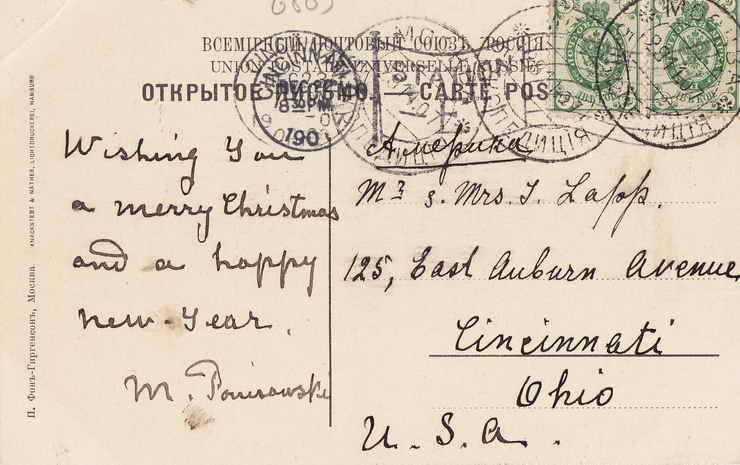 ВСЕМІРНЫЙ ПОЧТОВЫЙ СОЮЗЪ. РОССІЯ
UNION POSTALE UNIVERSELLE. RUSSIE
ОТКРЫТОЕ ПИСЬМО. CARTE POS
Америка
Wishing You
a merry Christmas
and a happy
new-Year.
M. Ponisowski
Mr & Mrs. I. Lapp.
125, East Auburn Avenue
Cincinnati
Ohio
U. S. A.
П. Фонъ-Гиргенсонъ, Москва.
KNACKSTEDT & NÄTHER, LICHTDRUCKEREI, HAMBURG